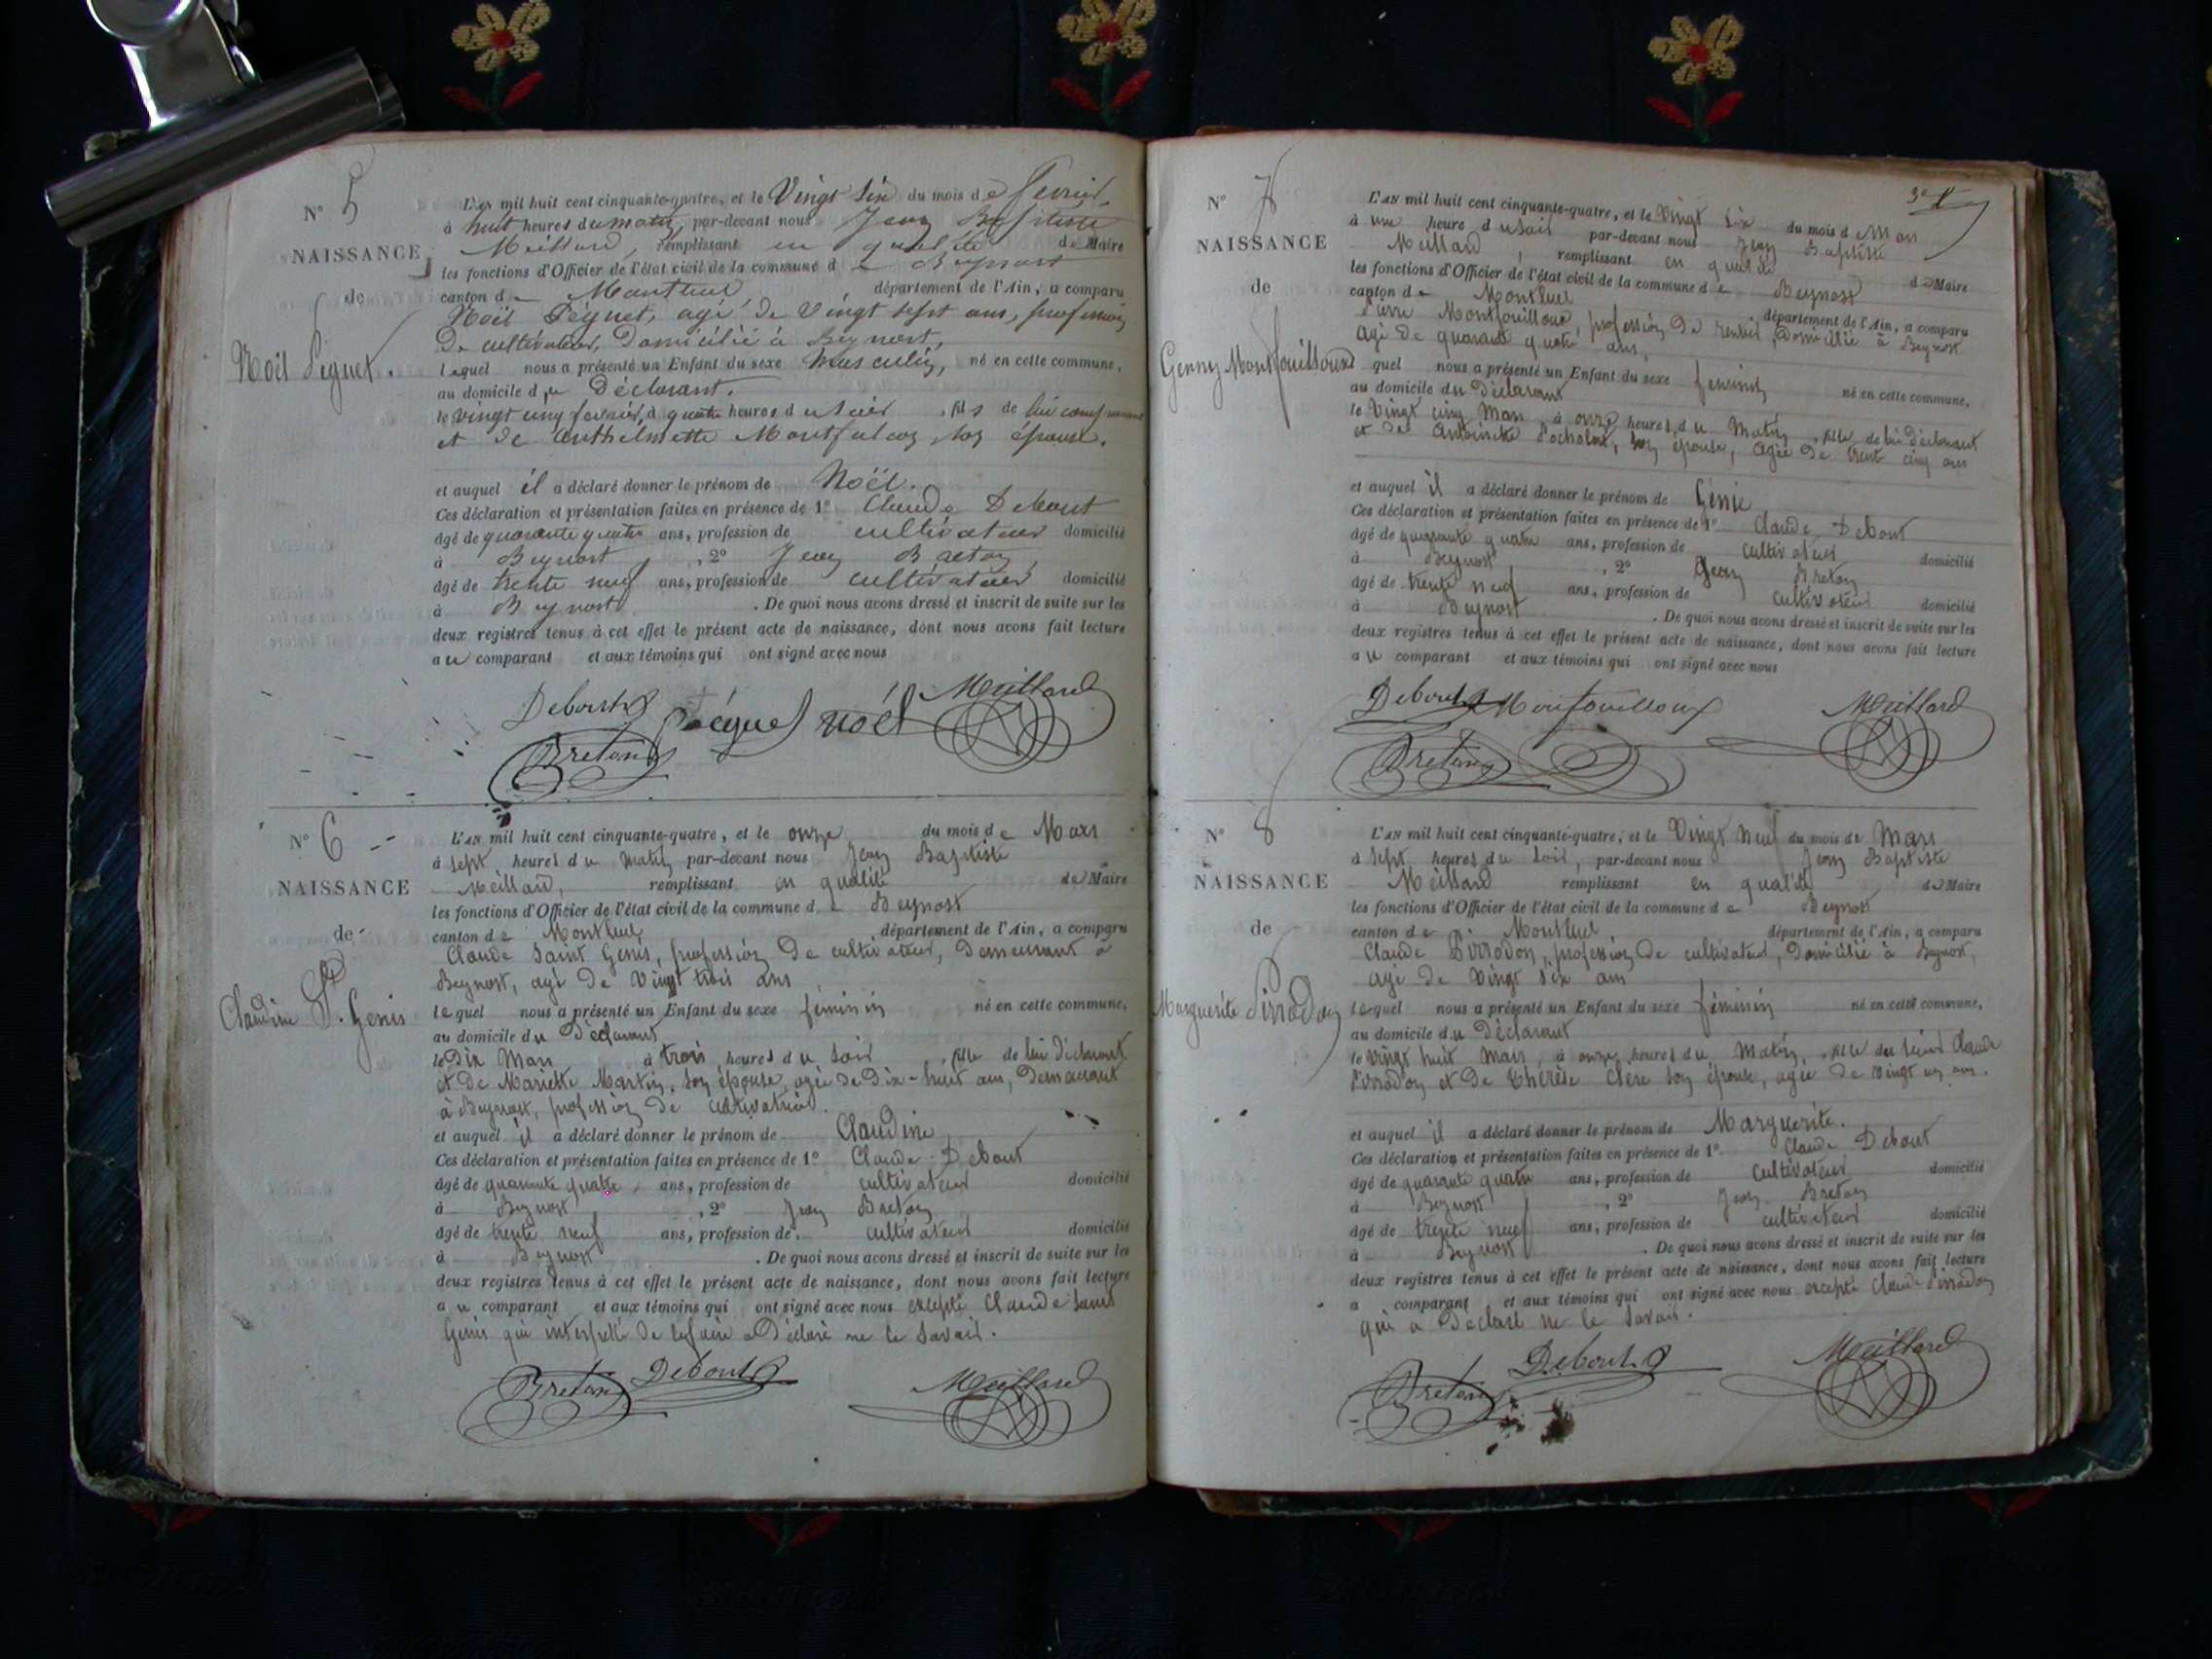 N° 5
NAISSANCE
de
Noël Péguet.
L'AN mil huit cent cinquante-quatre, et le Vingt Six du mois de fevrier,
à huit heures du matin, par-devant nous Jean Baptiste
Meillard, remplissant en qualité de Maire
les fonctions d'Officier de l'état civil de la commune de Beynost
canton de Montluel département de l'Ain, a comparu
Noël Péguet, agé de vingt sept ans, profession
De cultivateur, Domicilié à Beynost,
lequel nous a présenté un Enfant du sexe Masculin, né en cette commune,
au domicile du Déclarant.
le vingt cinq fevrier, à quatre heures du soir, fils de lui comparant
et de Anthelmette Montfalcon, son épouse.
et auquel il a déclaré donner le prénom de Noël.
Ces déclaration et présentation faites en présence de 1° Claude Debout
âgé de quarante quatre ans, profession de cultivateur domicilié
à Beynost, 2° Jean Breton,
âgé de trente neuf ans, profession de cultivateur domicilié
à Beynost. De quoi nous avons dressé et inscrit de suite sur les
deux registres tenus à cet effet le présent acte de naissance, dont nous avons fait lecture
au comparant et aux témoins qui ont signé avec nous
Debout Péguet noél Meillard
Breton
N° 6
NAISSANCE
de
Claudine St. Genis
L'AN mil huit cent cinquante-quatre, et le onze du mois de Mars
à sept heures du matin par-devant nous Jean Baptiste
Meillard, remplissant en qualité de Maire
les fonctions d'Officier de l'état civil de la commune de Beynost
canton de Montluel département de l'Ain, a comparu
Claude Saint Genis, profession De cultivateur, Demeurant à
Beynost, agé De Vingt trois ans
lequel nous a présenté un Enfant du sexe féminin né en cette commune,
au domicile du Déclarant
le Dix Mars à trois heures du soir, fille de lui déclarant
et De Mariette Martin, son épouse, agée de Dix-huit ans, Demeurant
à Beynost, profession De cultivatrice.
et auquel il a déclaré donner le prénom de Claudine
Ces déclaration et présentation faites en présence de 1° Claude Debout
âgé de quarante quatre ans, profession de cultivateur domicilié
à Beynost, 2° Jean Breton
âgé de trente neuf ans, profession de cultivateur domicilié
à Beynost. De quoi nous avons dressé et inscrit de suite sur les
deux registres tenus à cet effet le présent acte de naissance, dont nous avons fait lecture
au comparant et aux témoins qui ont signé avec nous excepté Claude Saint
Genis qui interpellé De le faire a Déclaré ne le Savoir.
Breton Debout Meillard
3e
N° 7
NAISSANCE
de
Genny Montfouilloux
L'AN mil huit cent cinquante-quatre, et le Vingt six du mois de Mars
à une heure du soir par-devant nous Jean Baptiste
Meillard, remplissant en qualité de Maire
les fonctions d'Officier de l'état civil de la commune de Beynost
canton de Montluel département de l'Ain, a comparu
Pierre Montfouilloux, profession De rentier, Domicilié à Beynost
agé De quarante quatre ans,
quel nous a présenté un Enfant du sexe feminin né en cette commune,
au domicile du Déclarant
le Vingt cinq Mars, à onze heures du Matin, fille de lui déclarant
et de Antoinette, son épouse, agée De trente cinq ans
et auquel il a déclaré donner le prénom de Génie
Ces déclaration et présentation faites en présence de 1° Claude Debout
âgé de quarante quatre ans, profession de cultivateur domicilié
à Beynost, 2° Jean Breton
âgé de trente neuf ans, profession de cultivateur domicilié
à Beynost. De quoi nous avons dressé et inscrit de suite sur les
deux registres tenus à cet effet le présent acte de naissance, dont nous avons fait lecture
au comparant et aux témoins qui ont signé avec nous
Debout Monfouilloux Meillard
Breton
N° 8
NAISSANCE
de
Marguerite Pirrodon
L'AN mil huit cent cinquante-quatre, et le Vingt neuf du mois de Mars
à sept heures du soir, par-devant nous Jean Baptiste
Meillard remplissant en qualité de Maire
les fonctions d'Officier de l'état civil de la commune de Beynost
canton de Montluel. département de l'Ain, a comparu
Claude Pirrodon, profession De cultivateur, Domicilié à Beynost,
agé De Vingt six ans
lequel nous a présenté un Enfant du sexe féminin né en cette commune,
au domicile du Déclarant
le vingt huit Mars, à onze heures du Matin, fille du sieur Claude
Pirrodon et De Thérèse Clere son épouse, agée De vingt un ans.
et auquel il a déclaré donner le prénom de Marguerite.
Ces déclaration et présentation faites en présence de 1° Claude Debout
âgé de quarante quatre ans, profession de cultivateur domicilié
à Beynost, 2° Jean Breton
âgé de trente neuf ans, profession de cultivateur domicilié
à Beynost. De quoi nous avons dressé et inscrit de suite sur les
deux registres tenus à cet effet le présent acte de naissance, dont nous avons fait lecture
a comparant et aux témoins qui ont signé avec nous excepté Claude Pirrodon
qui a Déclaré ne le savoir.
Breton Debout Meillard